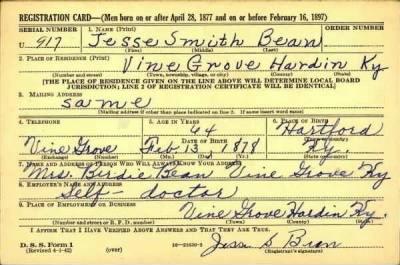 REGISTRATION CARD—(Men born on or after April 28, 1877 and on or before February 16, 1897)
SERIAL NUMBER 1. NAME (Print) ORDER NUMBER
U 917 Jesse Smith Bean
(First) (Middle) (Last)
2. PLACE OF RESIDENCE (Print)
Vine Grove Hardin Ky
(Number and street) (Town, township, village, or city) (County) (State)
[THE PLACE OF RESIDENCE GIVEN ON THE LINE ABOVE WILL DETERMINE LOCAL BOARD
JURISDICTION; LINE 2 OF REGISTRATION CERTIFICATE WILL BE IDENTICAL]
3. MAILING ADDRESS
same
[Mailing address if other than place indicated on line 2. If same insert word same]
4. TELEPHONE 5. AGE IN YEARS 6. PLACE OF BIRTH
64 Hartford
DATE OF BIRTH (Town or county)
Vine Grove Feb 13, 1878 Ky.
(Exchange) (Number) (Mo.) (Day) (Yr.) (State or country)
7. NAME AND ADDRESS OF PERSON WHO WILL ALWAYS KNOW YOUR ADDRESS
Mrs. Birdie Bean Vine Grove Ky
8. EMPLOYER'S NAME AND ADDRESS
Self - doctor
9. PLACE OF EMPLOYMENT OR BUSINESS
Vine Grove Hardin Ky.
(Number and street or R. F. D. number) (Town) (County) (State)
I AFFIRM THAT I HAVE VERIFIED ABOVE ANSWERS AND THAT THEY ARE TRUE.
D. S. S. Form 1
(Revised 4-1-42) (over) Jesse S Bean
(Registrant's signature)